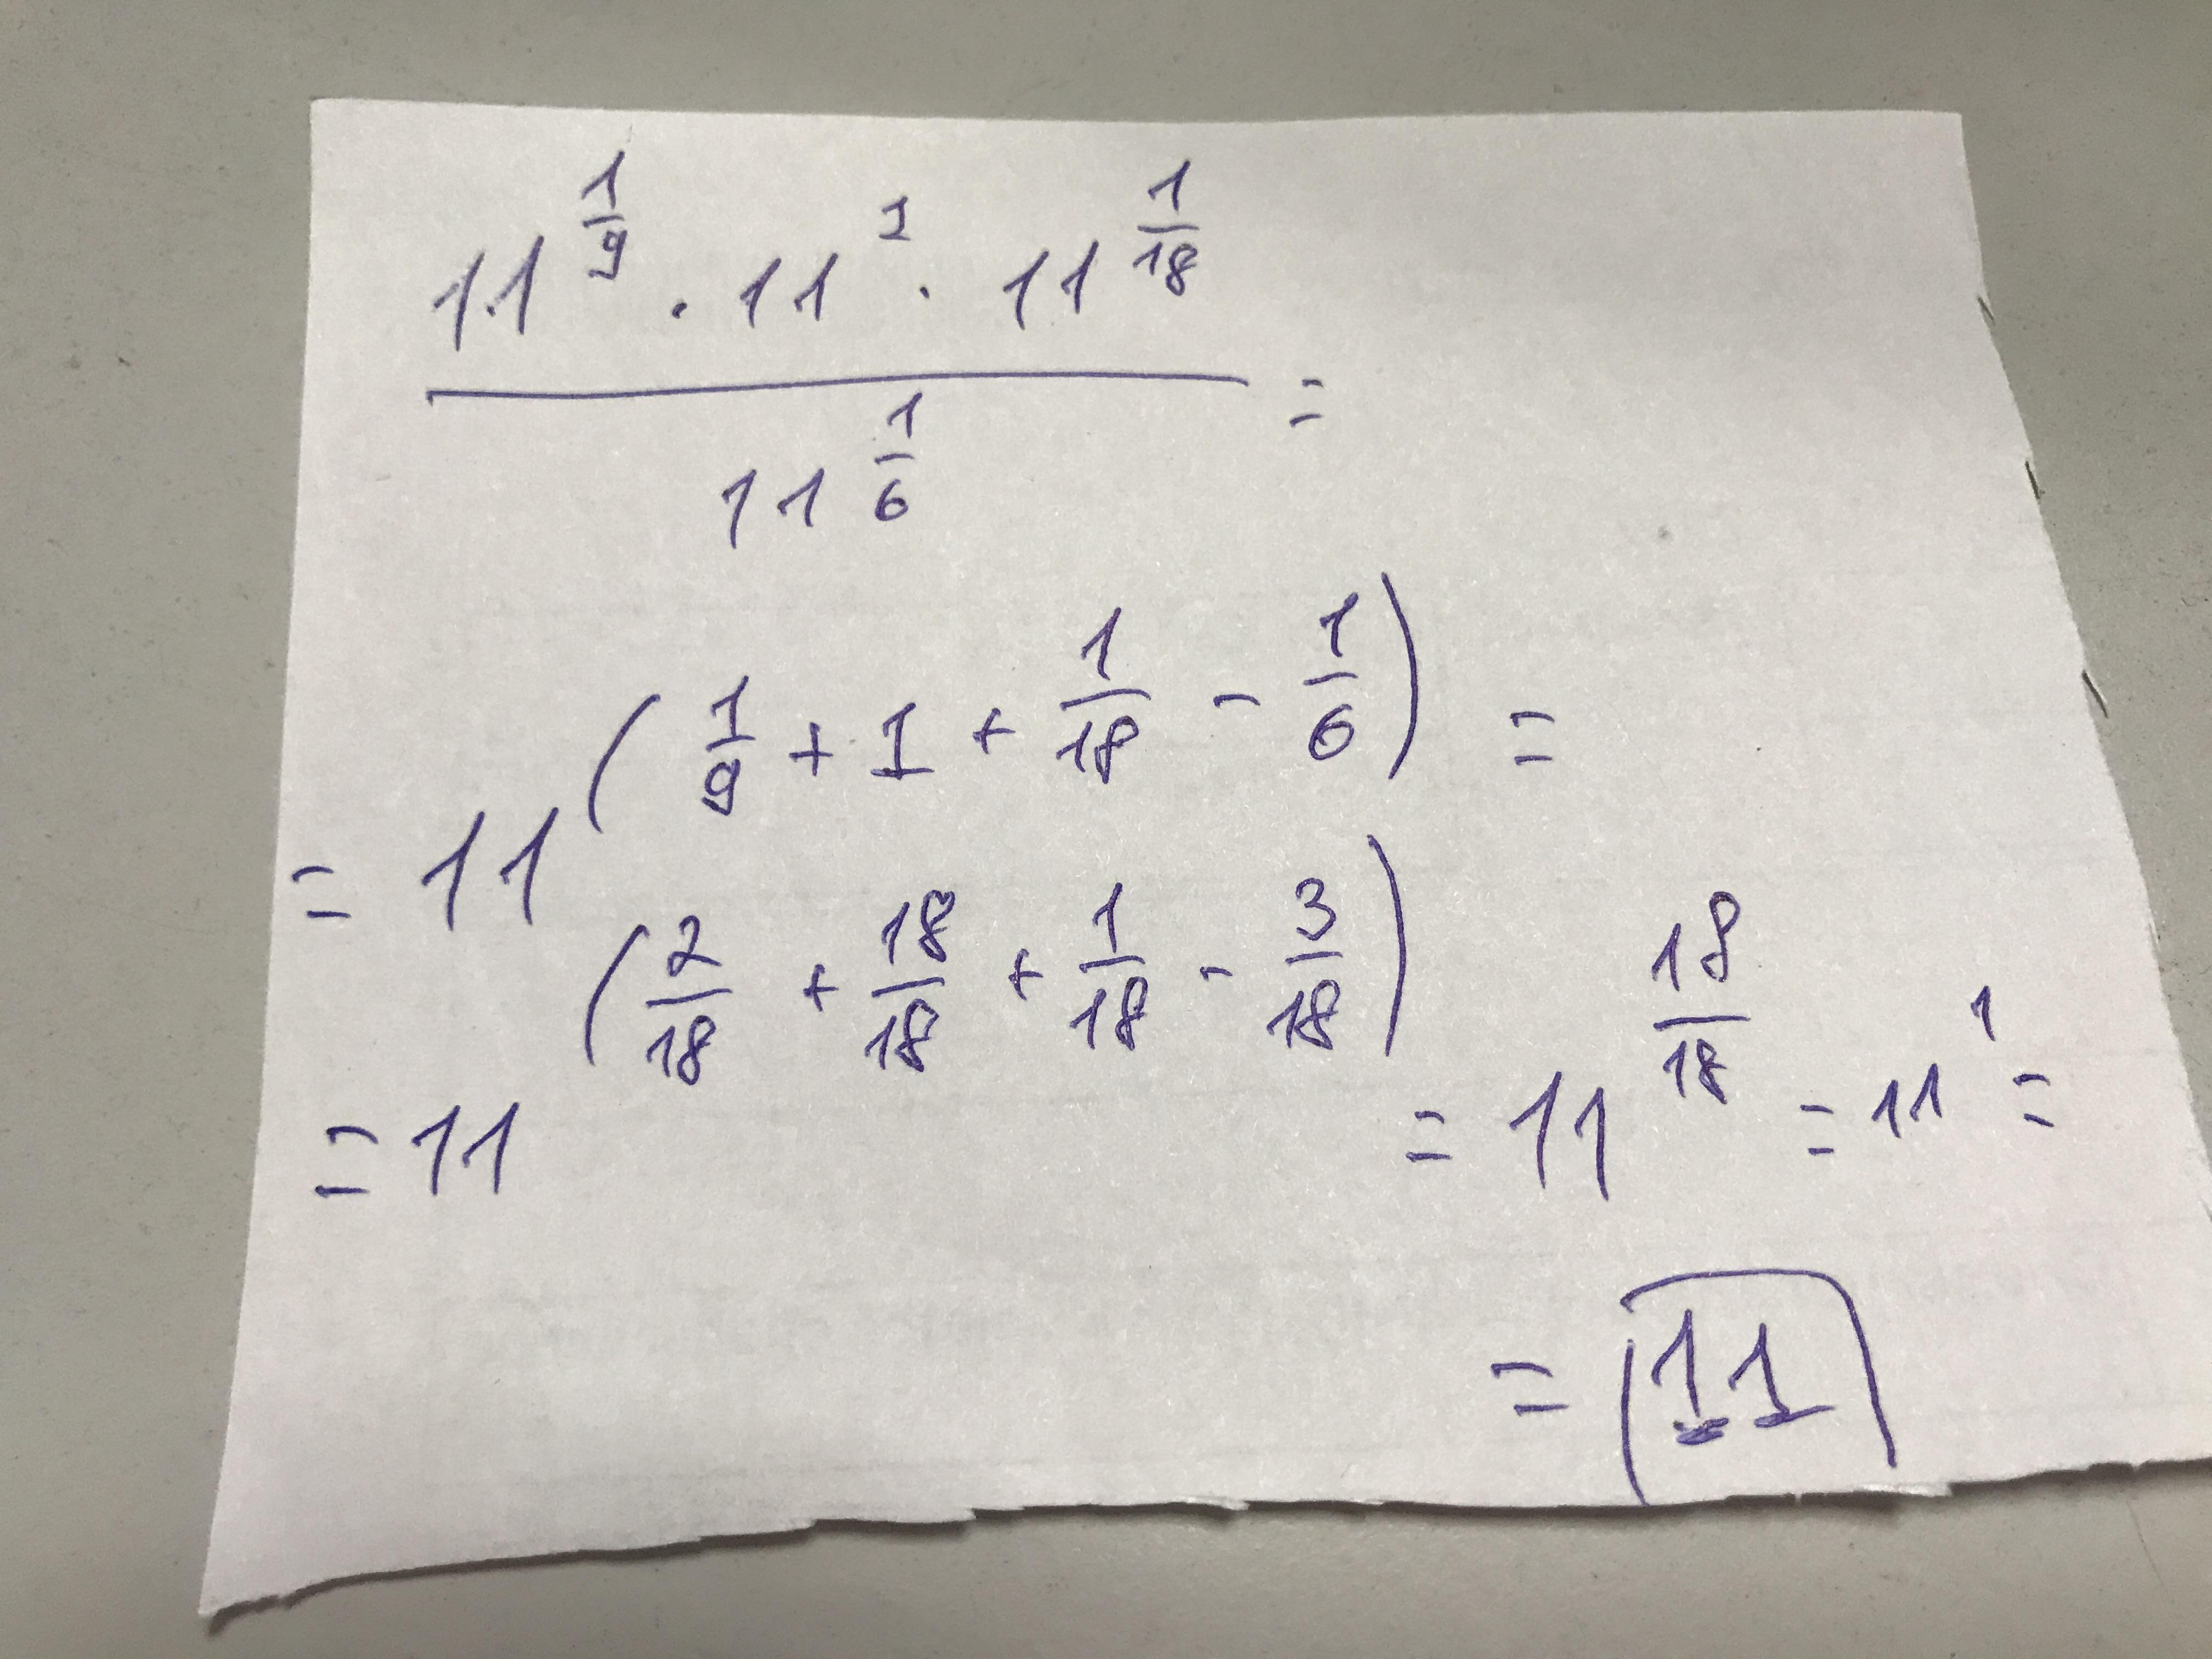 11^(1/9) · 11^1 · 11^(1/18) / 11^(1/6) =
= 11^(1/9 + 1 + 1/18 - 1/6) =
= 11^(2/18 + 18/18 + 1/18 - 3/18) = 11^(18/18) = 11^1 =
= 11